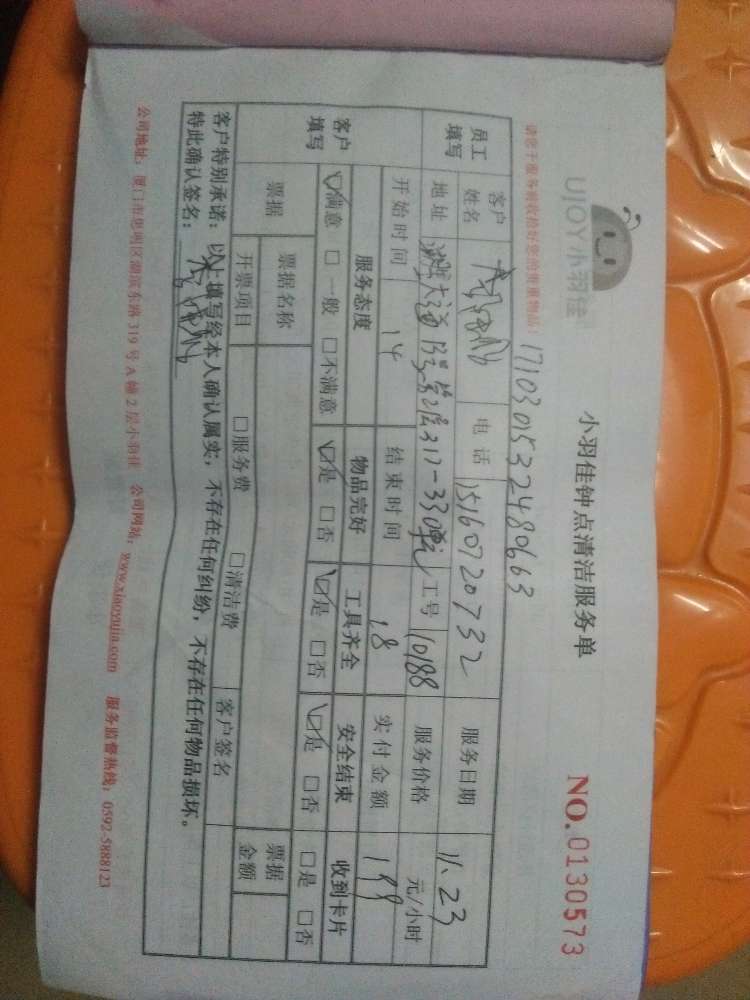 UJOY小羽佳
小羽佳钟点清洁服务单
NO.0130573
请您于服务前收拾好您的贵重物品!
1710301532480663
员工填写 客户姓名 电话 15160720732 服务日期 11.23
地址 大道 317-330 工号 10188 服务价格 元/小时
开始时间 14 结束时间 18 实付金额 199
客户填写 服务态度 物品完好 工具齐全 安全结束 收到卡片
☑满意 □一般 □不满意 ☑是 □否 ☑是 □否 ☑是 □否 □是 □否
票据 票据名称 票据金额
开票项目 □服务费 □清洁费 客户签名
客户特别承诺:以上填写经本人确认属实,不存在任何纠纷,不存在任何物品损坏。
特此确认签名:
公司地址:厦门市思明区湖滨东路319号A幢2层小羽佳 公司网站:www.xiaoyujia.com 服务监督热线:0592-5888123